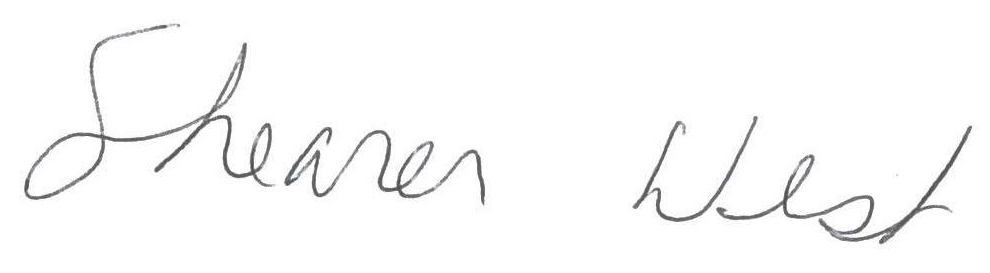 Shearer West